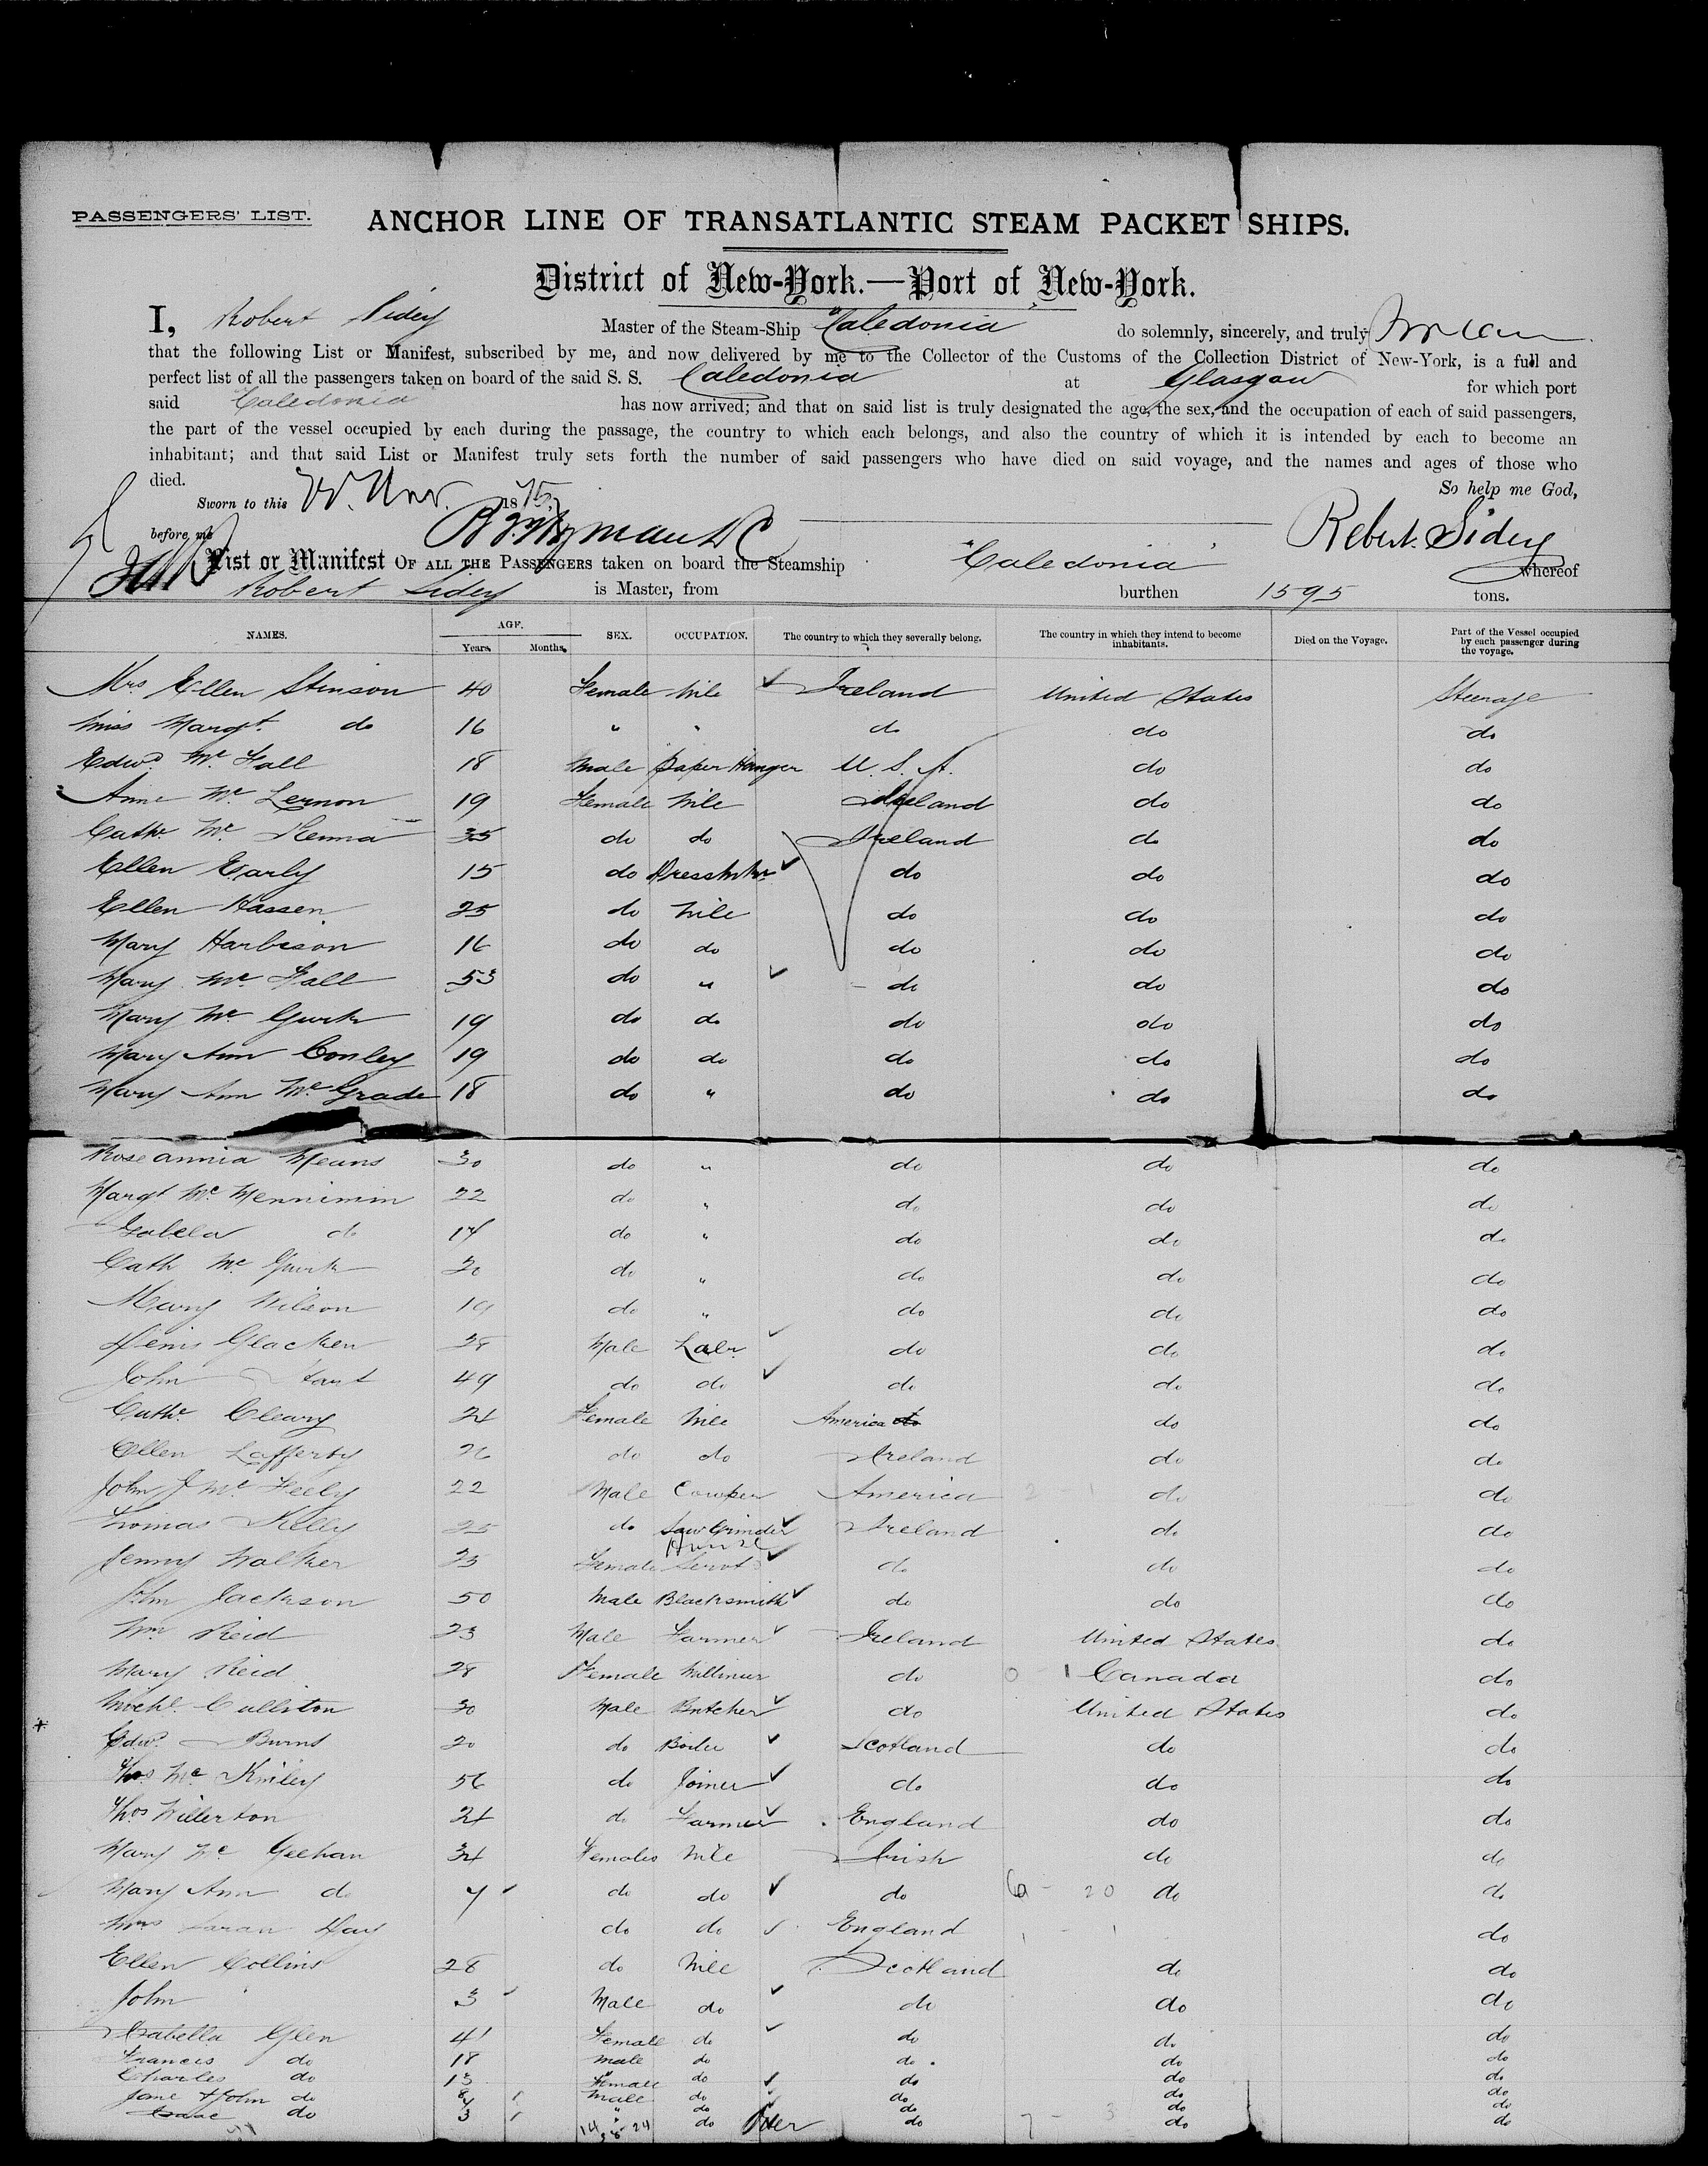 PASSENGERS' LIST.
ANCHOR LINE OF TRANSATLANTIC STEAM PACKET SHIPS.
District of New-York.—Port of New-York.
I, Robert Sidey Master of the Steam-Ship "Caledonia" do solemnly, sincerely, and truly
that the following List or Manifest, subscribed by me, and now delivered by me to the Collector of the Customs of the Collection District of New-York, is a full and
perfect list of all the passengers taken on board of the said S. S. Caledonia at Glasgow for which port
said Caledonia has now arrived; and that on said list is truly designated the age, the sex, and the occupation of each of said passengers,
the part of the vessel occupied by each during the passage, the country to which each belongs, and also the country of which it is intended by each to become an
inhabitant; and that said List or Manifest truly sets forth the number of said passengers who have died on said voyage, and the names and ages of those who
died. So help me God,
Sworn to this Nov. 1875
before me Robert Sidey
List or Manifest OF ALL THE PASSENGERS taken on board the Steamship "Caledonia" whereof
Robert Sidey is Master, from burthen 1595 tons.
NAMES. AGE. Years. Months. SEX. OCCUPATION. The country to which they severally belong. The country in which they intend to become inhabitants. Died on the Voyage. Part of the Vessel occupied by each passenger during the voyage.
Mrs Ellen Stinson 40 Female Nile Ireland United States Steerage
Miss Margt. do 16 " " do do do
Edwd. Mc Fall 18 Male Paper Hanger U. S. A. do do
Anne Mc Lernon 19 Female Nile Ireland do do
Cathe. Mc Kenna 35 do do Ireland do do
Ellen Early 15 do Dressmkr do do do
Ellen Hassen 25 do Nile do do do
Mary Harbison 16 do do do do do
Mary Mc Fall 53 do " do do do
Mary Mc Gurk 19 do do do do do
Mary Ann Conley 19 do do do do do
Mary Ann Mc Grade 18 do " do do do
Roseannia Means 30 do " do do do
Margt Mc Mennimin 22 do " do do do
Isabela do 14 do " do do do
Cath Mc Gurk 20 do " do do do
Mary Wilson 19 do " do do do
Denis Glacken 28 Male Labr. do do do
John 49 do do do do do
Cathe. Cleary 24 Female Nile America do do do
Ellen Lafferty 26 do do Ireland do do
John J Mc Feely 22 Male Cowper America do do
Thomas Kelly 25 do Saw Grinder Ireland do do
Jenny Walker 23 Female House Servt do do do
John Jackson 50 Male Blacksmith do do do
Wm Reid 23 Male Farmer Ireland United States do
Mary Reid 28 Female Milliner do Canada do
Michl. Culliton 30 Male Butcher do United States do
Edwd. Burns 20 do Boiler Scotland do do
Thos Mc Kinley 56 do Joiner do do do
Thos Willerton 24 do Farmer England do do
Mary Mc Geehan 34 Females Nile Irish do do
Mary Ann do 7 do do do 6 - 20 do do
Mrs Sarah Hay do do England do
Ellen Collins 28 do Nile Scotland do do
John 3 Male do do do do
Isabella Glen 41 Female do do do do
Francis do 18 male do do do do
Charles do 13 Female do do do do
Jane & John do 8 Male do do do do
Isaac do 3 " do do do do